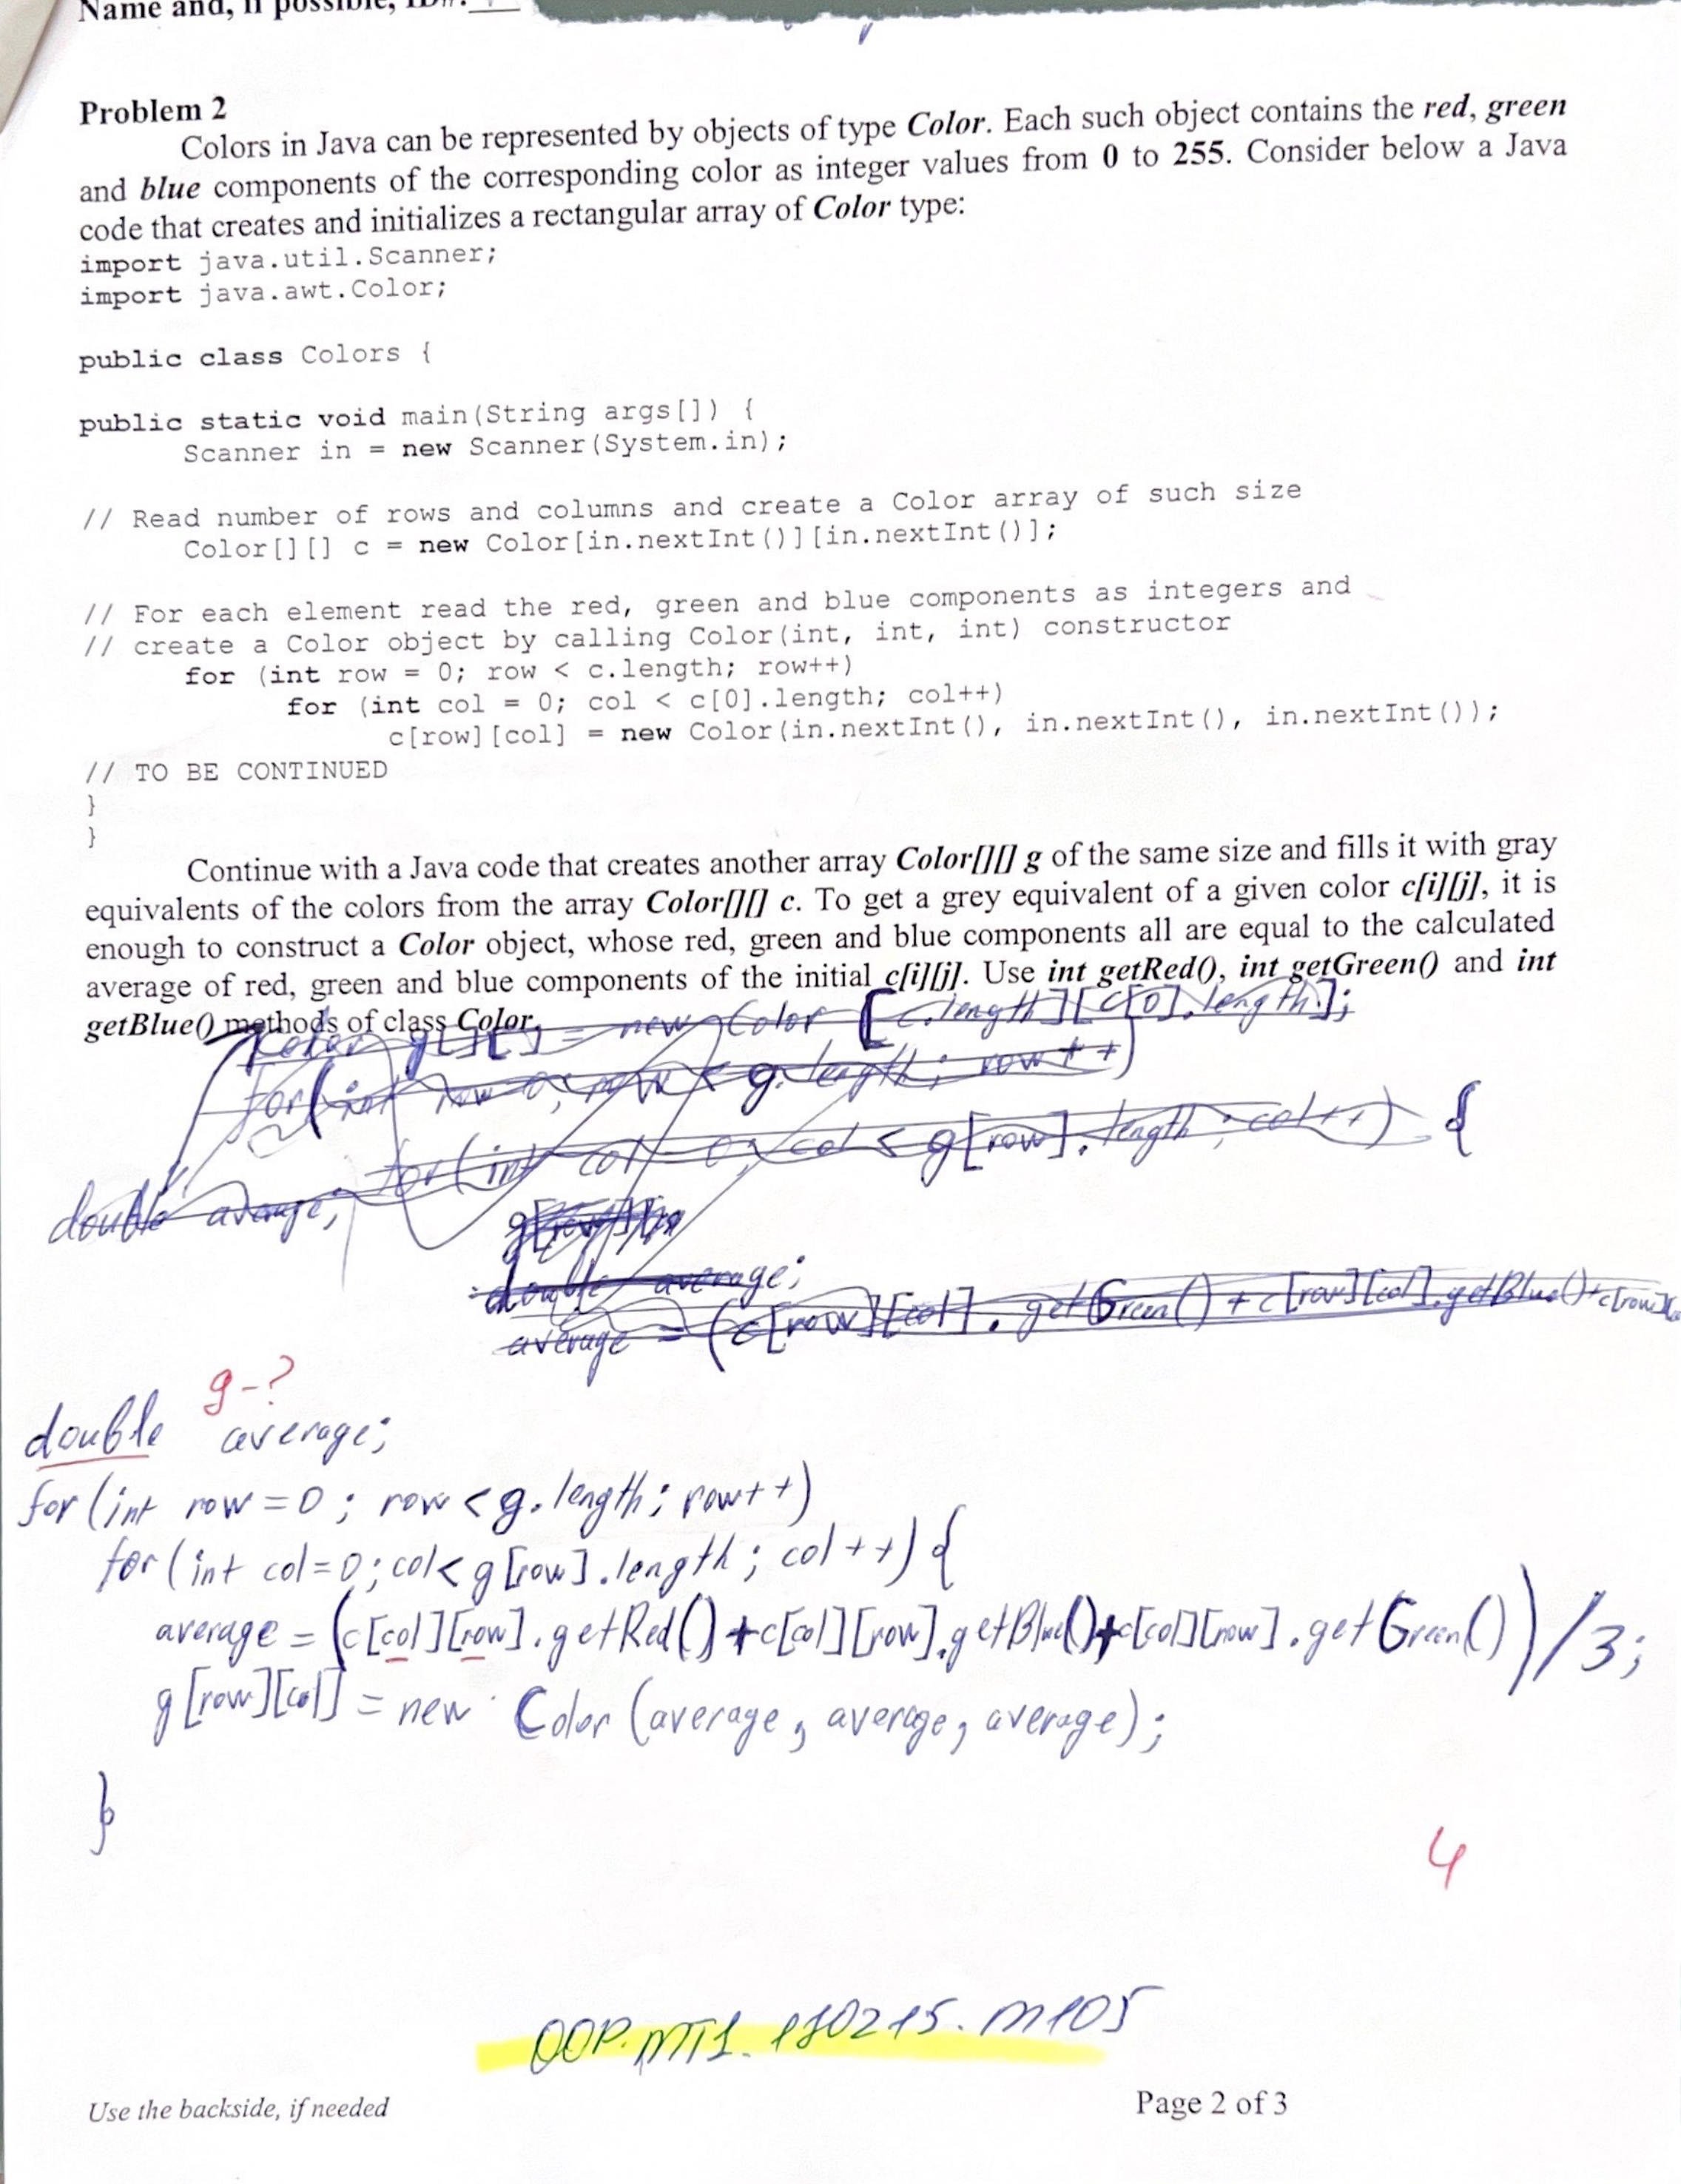 Name and, if possible, ID#:
Problem 2
Colors in Java can be represented by objects of type Color. Each such object contains the red, green
and blue components of the corresponding color as integer values from 0 to 255. Consider below a Java
code that creates and initializes a rectangular array of Color type:
import java.util.Scanner;
import java.awt.Color;
public class Colors {
public static void main(String args[]) {
Scanner in = new Scanner(System.in);
// Read number of rows and columns and create a Color array of such size
Color[][] c = new Color[in.nextInt()][in.nextInt()];
// For each element read the red, green and blue components as integers and
// create a Color object by calling Color(int, int, int) constructor
for (int row = 0; row < c.length; row++)
for (int col = 0; col < c[0].length; col++)
c[row][col] = new Color(in.nextInt(), in.nextInt(), in.nextInt());
// TO BE CONTINUED
}
}
Continue with a Java code that creates another array Color[][] g of the same size and fills it with gray
equivalents of the colors from the array Color[][] c. To get a grey equivalent of a given color c[i][j], it is
enough to construct a Color object, whose red, green and blue components all are equal to the calculated
average of red, green and blue components of the initial c[i][j]. Use int getRed(), int getGreen() and int
getBlue() methods of class Color.
Color g[][] = new Color [c.length][c[0].length];
for(int row = 0; row < g.length; row++)
for(int col = 0; col < g[row].length; col++) {
double average;
double average;
average = (c[row][col].getGreen() + c[row][col].getBlue() + c[row][
g-?
double average;
for (int row = 0; row < g.length; row++)
for (int col = 0; col < g[row].length; col++) {
average = (c[col][row].getRed() + c[col][row].getBlue() + c[col][row].getGreen())/3;
g[row][col] = new Color (average, average, average);
}
4
OOP.MT1.180215.M105
Use the backside, if needed
Page 2 of 3